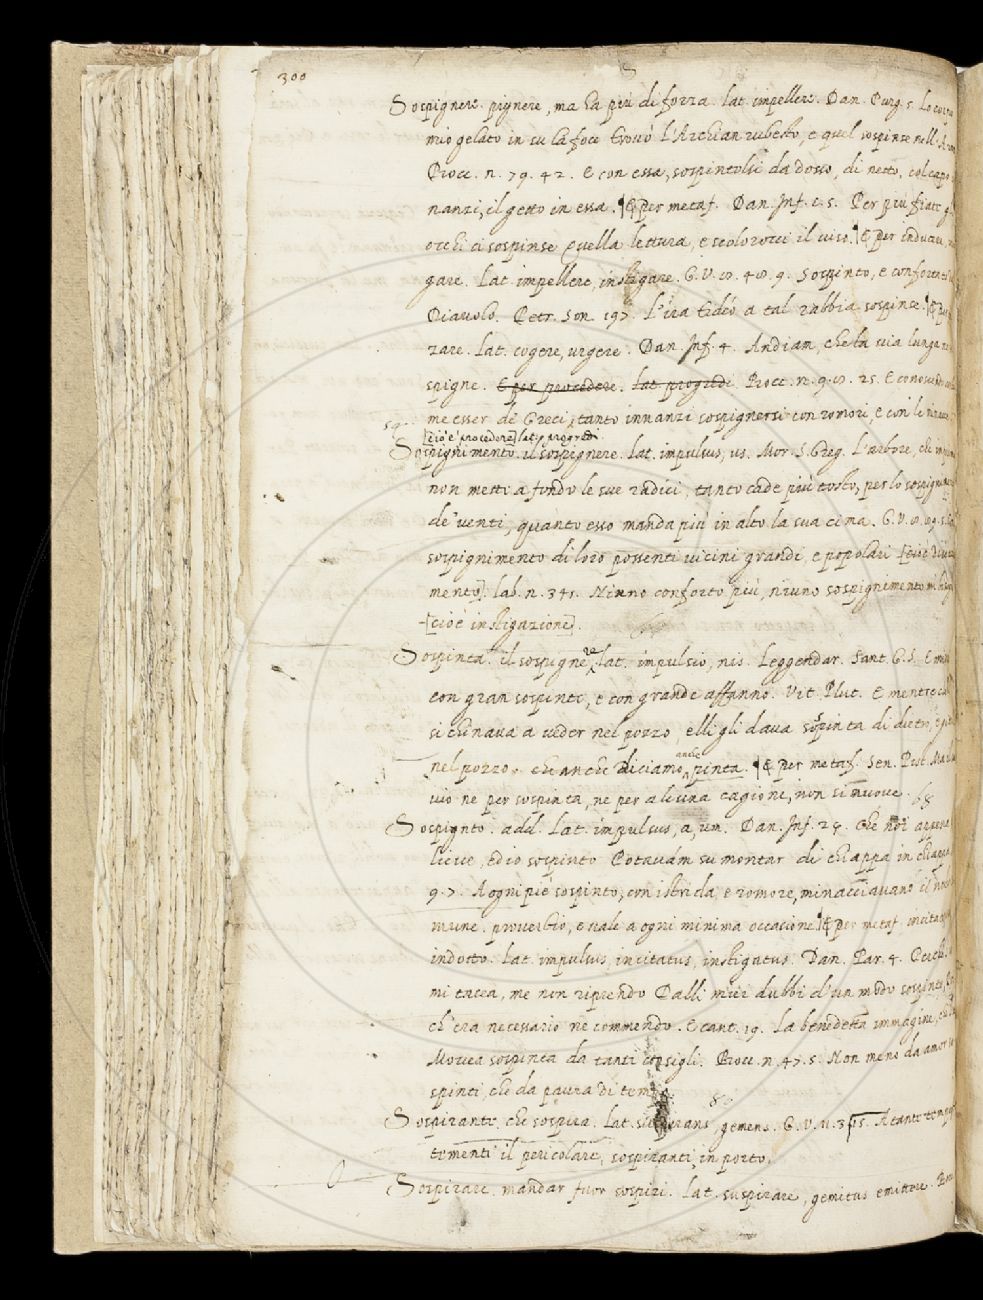 300
Sospignere. pignere, ma ha più di forza. lat. impellere. Dan. Purg. 5. Lo corpo
mio gelato in su la foce trovò l'Archian rubesto, e quel sospinse nell'
Bocc. n. 79. 42. E con essa, sospintolsi da dosso, di netto, col capo
nanzi, il gettò in essa. ¶ E per metaf. Dan. Inf. c. 5. Per più fiate gl
occhi ci sospinse Quella lettura, e scolorocci il viso. ¶ E per indurre,
gare. Lat. impellere, instigare. G. V. 8. 48. 9. Sospinto, e confortato
Diavolo. Petr. Son. 197. L'ira Tidéo a tal rabbia sospinse. ¶ E per
zare. Lat. cogere, urgere. Dan. Inf. 4. Andiam, che la via lunga ne
spigne. E per procedere. lat. progredi. Bocc. n. 98. 25. E conoscendo
me esser de' Greci, tanto innanzi sospignersi con romori, e con le
[cioè procedere] lat. progredi
Sospignimento. il sospignere. Lat. impulsus, us. Mor. S. Greg. L'arbore, che
non mette a fondo le sue radici, tanto cade più tosto, per lo sospignimen
de' venti, quanto esso manda più in alto la sua cima. G. V.
sospignimento di loro possenti vicini grandi, e popolari [cioè
mento]. lab. n. 345. Niuno conforto più, niuno sospignimento
[cioè instigazione].
Sospinta. il sospignere, lat. impulsio, nis. Leggendar. Sant. G. S. E
con gran sospinte, e con grande affanno. Vit. Plut. E mentre
si chinava a veder nel pozzo, elli gli dava sospinta di dietro,
nel pozzo. che anche diciamo anche pinta. ¶ E per metaf. Sen. Pist.
vio ne per sospinta, ne per alcuna cagione, non si muove.
Sospignto. add. Lat. impulsus, a, um. Dan. Inf. 24. Che noi appena
lieve, ed io sospinto Potavám su montar di chiappa in chiappa
97. A ogni piè sospinto, con istrida, e romore, minacciavano il
mune. proverbio, e vale a ogni minima occasione. ¶ E per metaf. incitato
indotto. Lat. impulsus, incitatus, instigatus. Dan. Par. 4. Perch'
mi tacea, me non riprendo Dalli miei dubbi d'un modo sospinto,
ch'era necessario ne commendo. E cant. 19. La benedetta immagine,
Movea sospinta da tanti consigli. Bocc. n. 47. 5. Non meno da amor
spinti, che da paura di tem
Sospirante. che sospira. Lat. suspirans, gemens. G. V. 11. 3. 15. A tante
tormenti il pericolare, sospiranti in porto.
Sospirare. mandar fuor sospiri. Lat. suspirare, gemitus emittere.